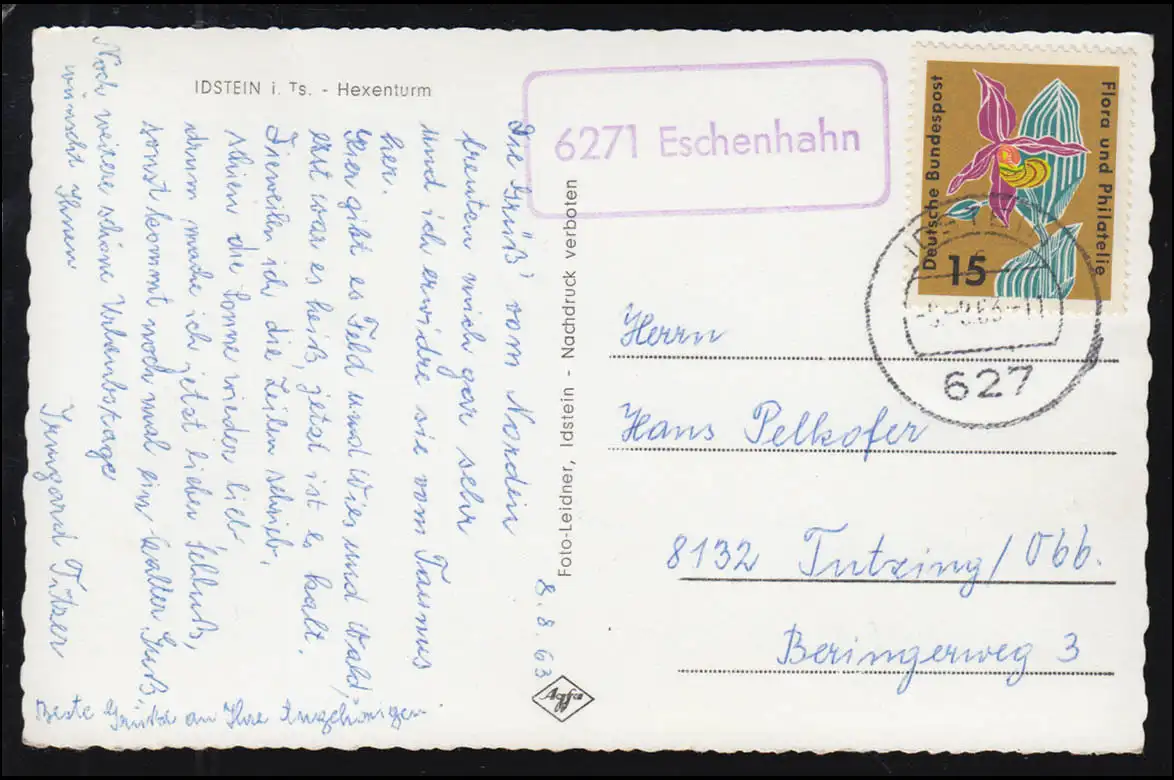 IDSTEIN i. Ts. - Hexenturm
8.8.63
Die Grüß' vom Norden
freuten mich gar sehr
und ich erwidre sie vom Taunus
her.
Hier gibt es Feld und Wies und Wald,
erst war es heiß, jetzt ist es kalt.
Dieweilen ich die Zeilen schrieb,
schien die Sonne wieder lieb
drum mache ich jetzt lieber Schluß,
sonst kommt noch mal ein kalter Guß
Noch weitere schöne Urlaubstage
wünscht Ihnen
Irmgard Titzer
Beste Grüße an Ihre Angehörigen.
Foto-Leidner, Idstein - Nachdruck verboten
Agfa
6271 Eschenhahn
Deutsche Bundespost
15
Flora und Philatelie
627
Herrn
Hans Pelkofer
8132 Tutzing/Obb.
Beringerweg 3